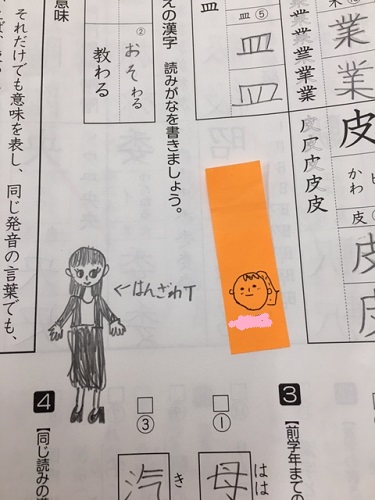 業業
業業業業
皮
かわ
皮
皮皮皮
皿
皿⑤
皿
皿
えの漢字　読みがなを書きましょう。
②
おそわる
教わる
意味
それだけでも意味を表し、同じ発音の言葉でも、
←はんざわT
3
【前学年までの
①
母
はは
③
汽
き
4
【同じ読みの